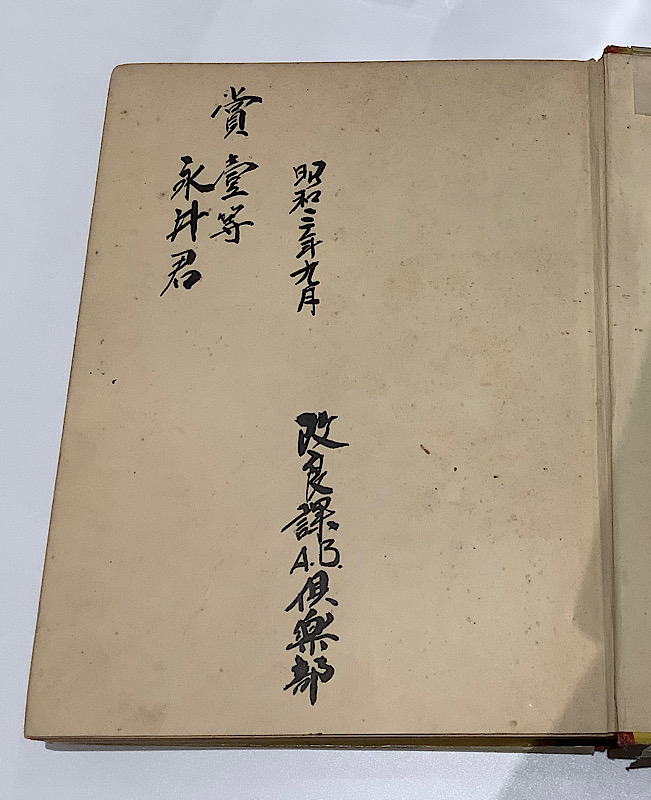 昭和二年九月
改良課A.B.倶楽部
賞
壹等
永井君